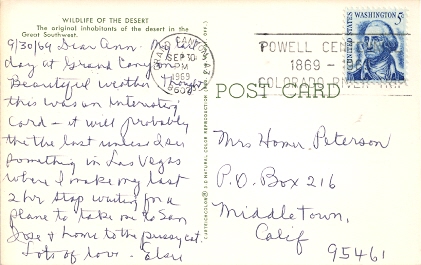 WILDLIFE OF THE DESERT
The original inhabitants of the desert in the
Great Southwest.
9/30/69 Dear Ann - My last
day at Grand Canyon &
Beautiful weather. Thought
this was an interesting
Card - it will probably
be the last unless I see
something in Las Vegas
where I make my last
2 hr stop waiting for a
plane to take me to San
Jose & home to the pussy cat.
Lots of love - Elsie
GRAND CANYON
SEP 30
1969
POWELL CEN
1869 - 1969
COLORADO RIVER
WASHINGTON 5¢
UNITED STATES
POST CARD
Mrs Homer Peterson
P.O. Box 216
Middletown,
Calif
95461